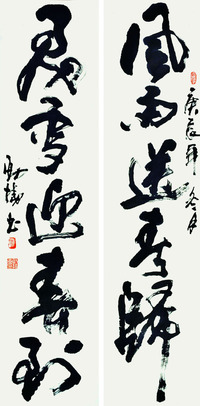 風雨送春歸
庚辰年冬月
飛雪迎春到
书